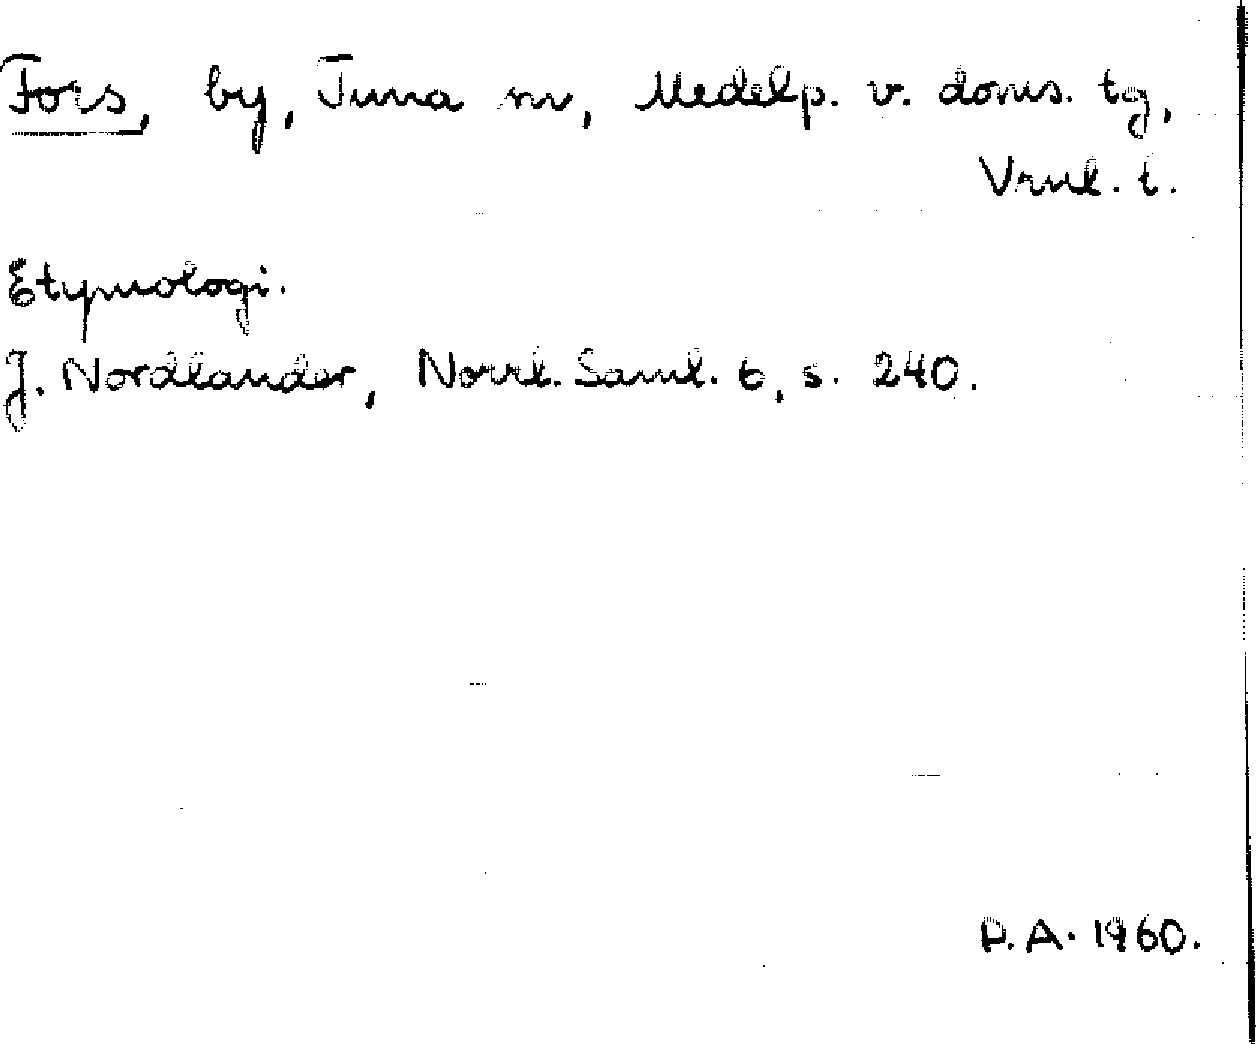 Fors, by, Tuna sn, Medelp. v. doms. tg,
Vrnl. l.
Etymologi.
J. Nordlander, Norrl. Saml. 6, s. 240.
P.A. 1960.